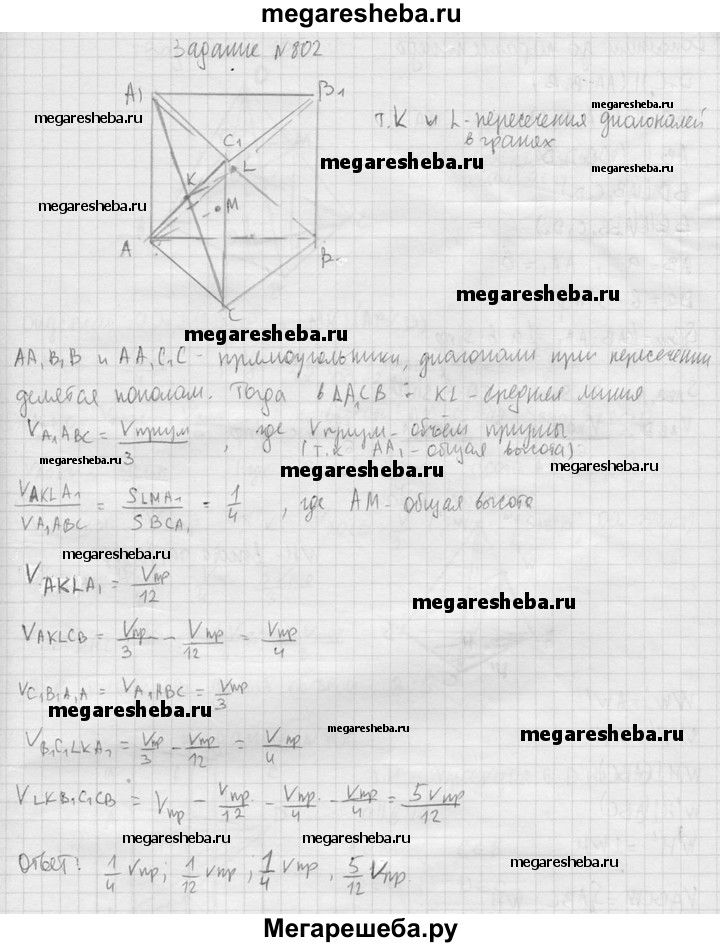 megaresheba.ru
Задание №802
A1 B1
megaresheba.ru
megaresheba.ru
т. K и L - пересечения диагоналей
в гранях
C1
megaresheba.ru
L
megaresheba.ru
K
megaresheba.ru
M
A B
megaresheba.ru
C
megaresheba.ru
AA1B1B и AA1C1C - прямоугольники, диагонали при пересечении
делятся пополам. Тогда в ΔA1CB : KL - средняя линия
VA1ABC = Vпризм/3 , где Vпризм - объём призмы
(т.к AA1 - общая высота)
megaresheba.ru
megaresheba.ru
VAKLA1/VA1ABC = SLMA1/SBCA1 = 1/4 , где AM - общая высота
megaresheba.ru
megaresheba.ru
VAKLA1 = Vпр/12
megaresheba.ru
VAKLCB = Vпр/3 - Vпр/12 = Vпр/4
VC1B1A1A = VA1ABC = Vпр/3
megaresheba.ru
megaresheba.ru
megaresheba.ru
VB1C1LKA1 = Vпр/3 - Vпр/12 = Vпр/4
VLKB1C1CB = Vпр - Vпр/12 - Vпр/4 - Vпр/4 = 5Vпр/12
megaresheba.ru
megaresheba.ru
Ответ: 1/4 Vпр; 1/12 Vпр; 1/4 Vпр, 5/12 Vпр.
megaresheba.ru
megaresheba.ru
megaresheba.ru
Мегарешеба.ру